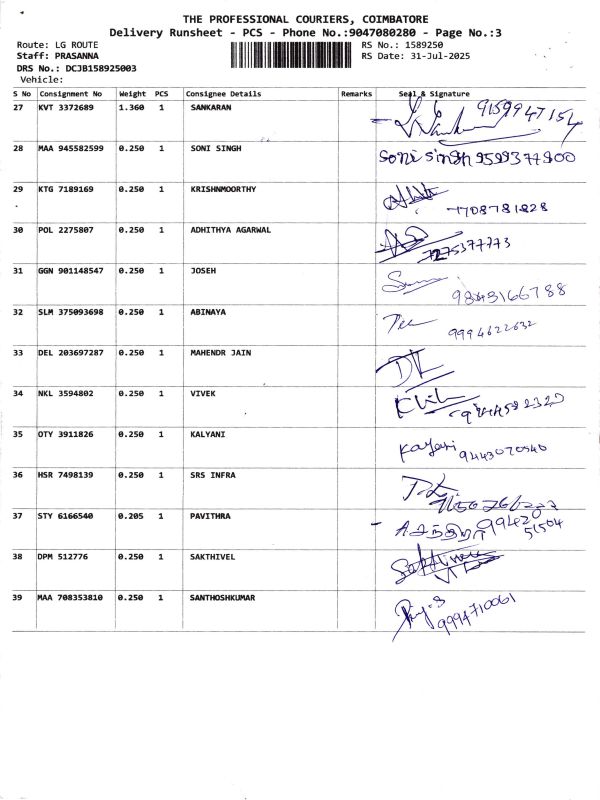 THE PROFESSIONAL COURIERS, COIMBATORE
Delivery Runsheet - PCS - Phone No.:9047080280 - Page No.:3
Route: LG ROUTE RS No.: 1589250
Staff: PRASANNA RS Date: 31-Jul-2025
DRS No.: DCJB158925003
Vehicle:
S No Consignment No Weight PCS Consignee Details Remarks Seal & Signature
27 KVT 3372689 1.360 1 SANKARAN 9159947154
28 MAA 945582599 0.250 1 SONI SINGH soni singh 9599377900
29 KTG 7189169 0.250 1 KRISHNMOORTHY 7708781828
30 POL 2275807 0.250 1 ADHITHYA AGARWAL 7275377773
31 GGN 901148547 0.250 1 JOSEH 9843166788
32 SLM 375093698 0.250 1 ABINAYA 9994622632
33 DEL 203697287 0.250 1 MAHENDR JAIN
34 NKL 3594802 0.250 1 VIVEK
35 OTY 3911826 0.250 1 KALYANI 9443070540
36 HSR 7498139 0.250 1 SRS INFRA
37 STY 6166540 0.205 1 PAVITHRA 99420
51504
38 DPM 512776 0.250 1 SAKTHIVEL
39 MAA 708353810 0.250 1 SANTHOSHKUMAR 9994710061